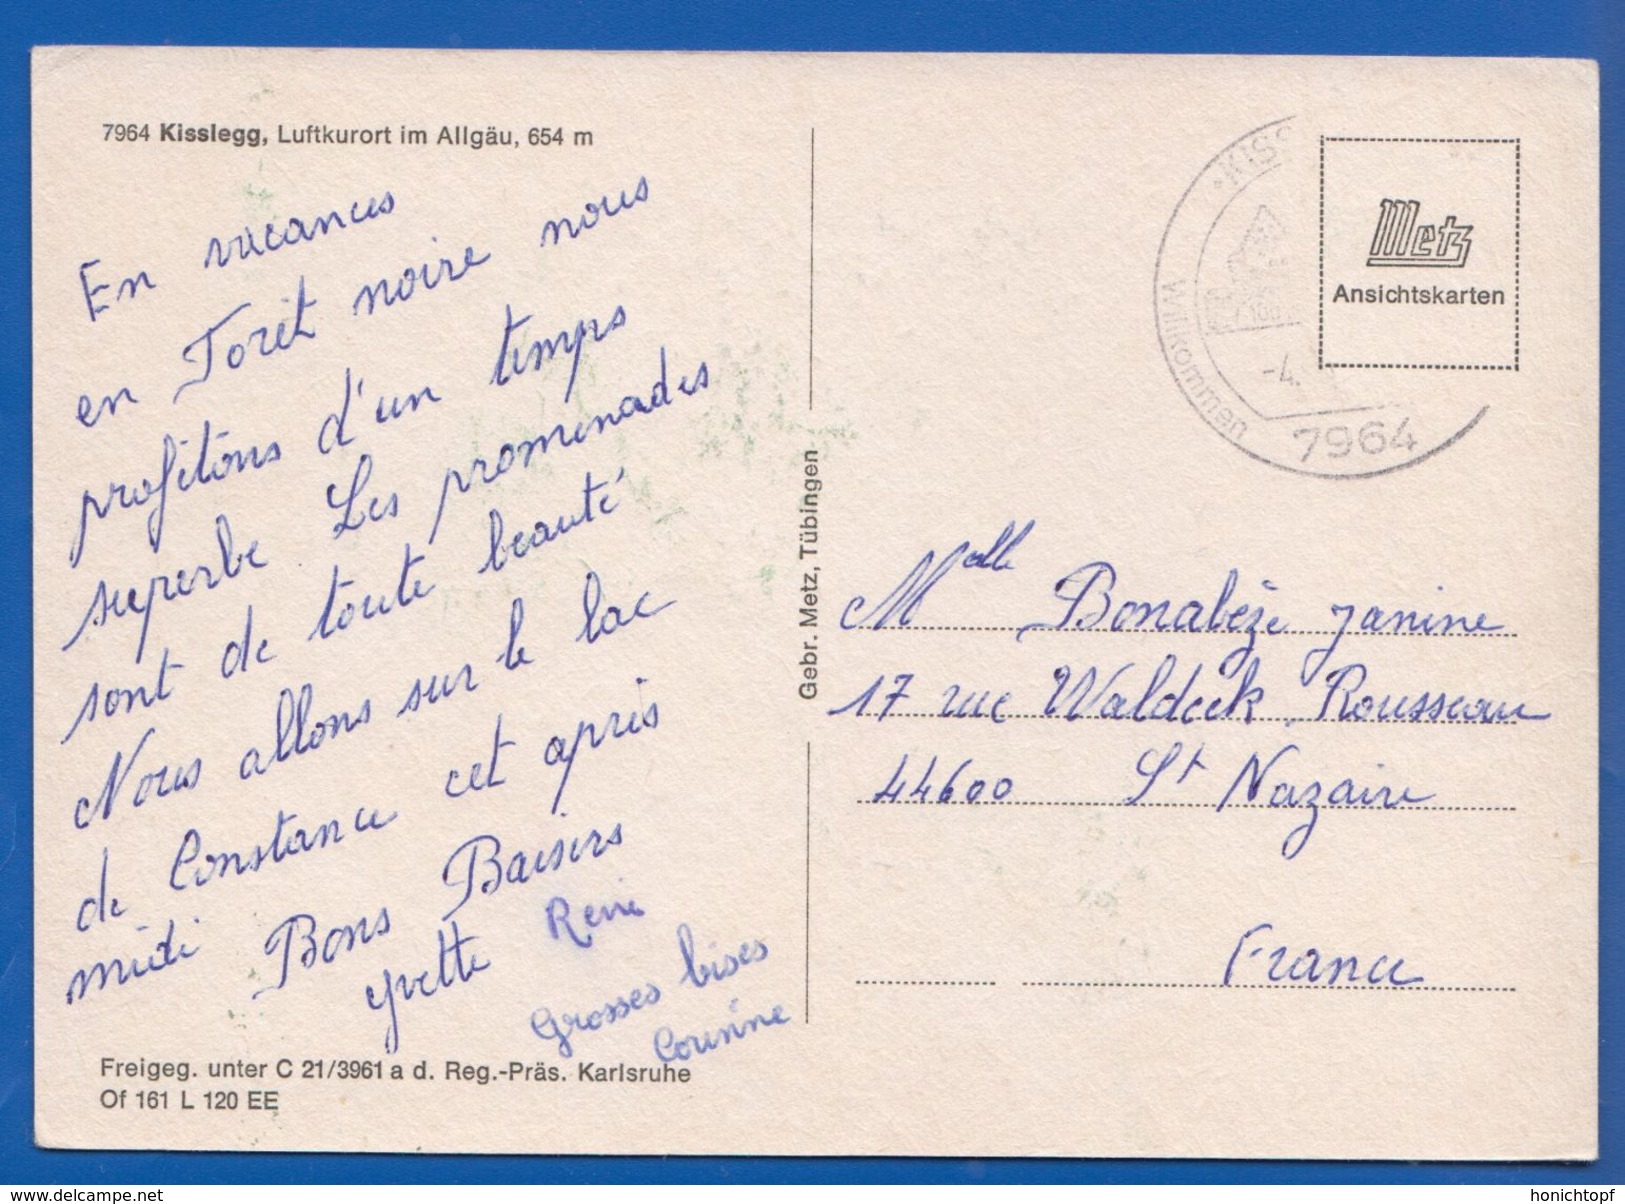 7964 Kisslegg, Luftkurort im Allgäu, 654 m
En vacances
en Foret noire nous
profitons d'un temps
superbe Les promenades
sont de toute beauté
Nous allons sur le lac
de Constance cet après
midi Bons Baisers
Yvette René
Grosses bises
Corinne
Freigeg. unter C 21/3961 a d. Reg.-Präs. Karlsruhe
Of 161 L 120 EE
Gebr. Metz, Tübingen
Willkommen
-4.
7964
Metz
Ansichtskarten
Melle Bonabèze Janine
17 rue Waldeck Rousseau
44600 St Nazaire
France
www.delcampe.net
honichtopf